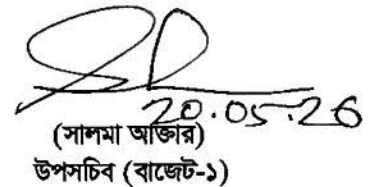 20.05.26
(সালমা আক্তার)
উপসচিব (বাজেট-১)